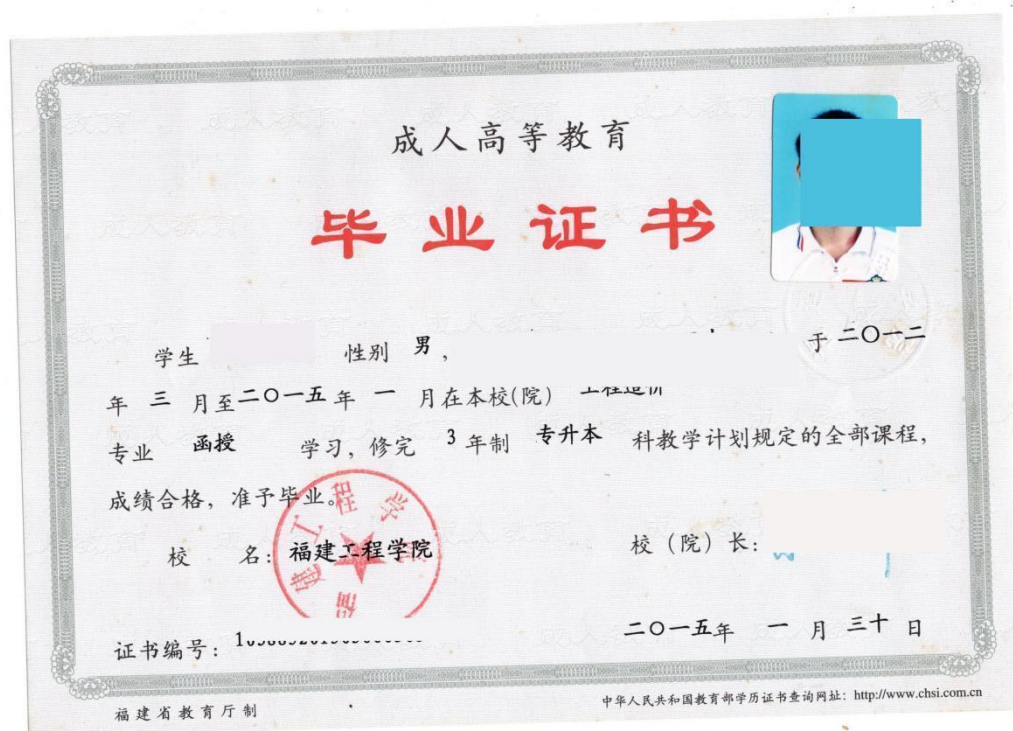 成人高等教育
毕业证书
学生 性别 男, 于 二〇一二
年 三 月至 二〇一五 年 一 月在本校(院) 工程造价
专业 函授 学习, 修完 3 年制 专升本 科教学计划规定的全部课程,
成绩合格, 准予毕业。
校 名: 福建工程学院 校(院)长:
福建工程学院
证书编号: 二〇一五年 一 月 三十 日
福建省教育厅制 中华人民共和国教育部学历证书查询网址: http://www.chsi.com.cn